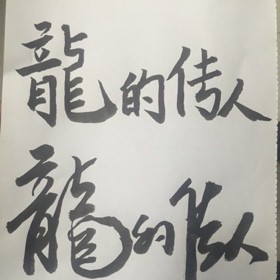 龍的传人
龍的传人